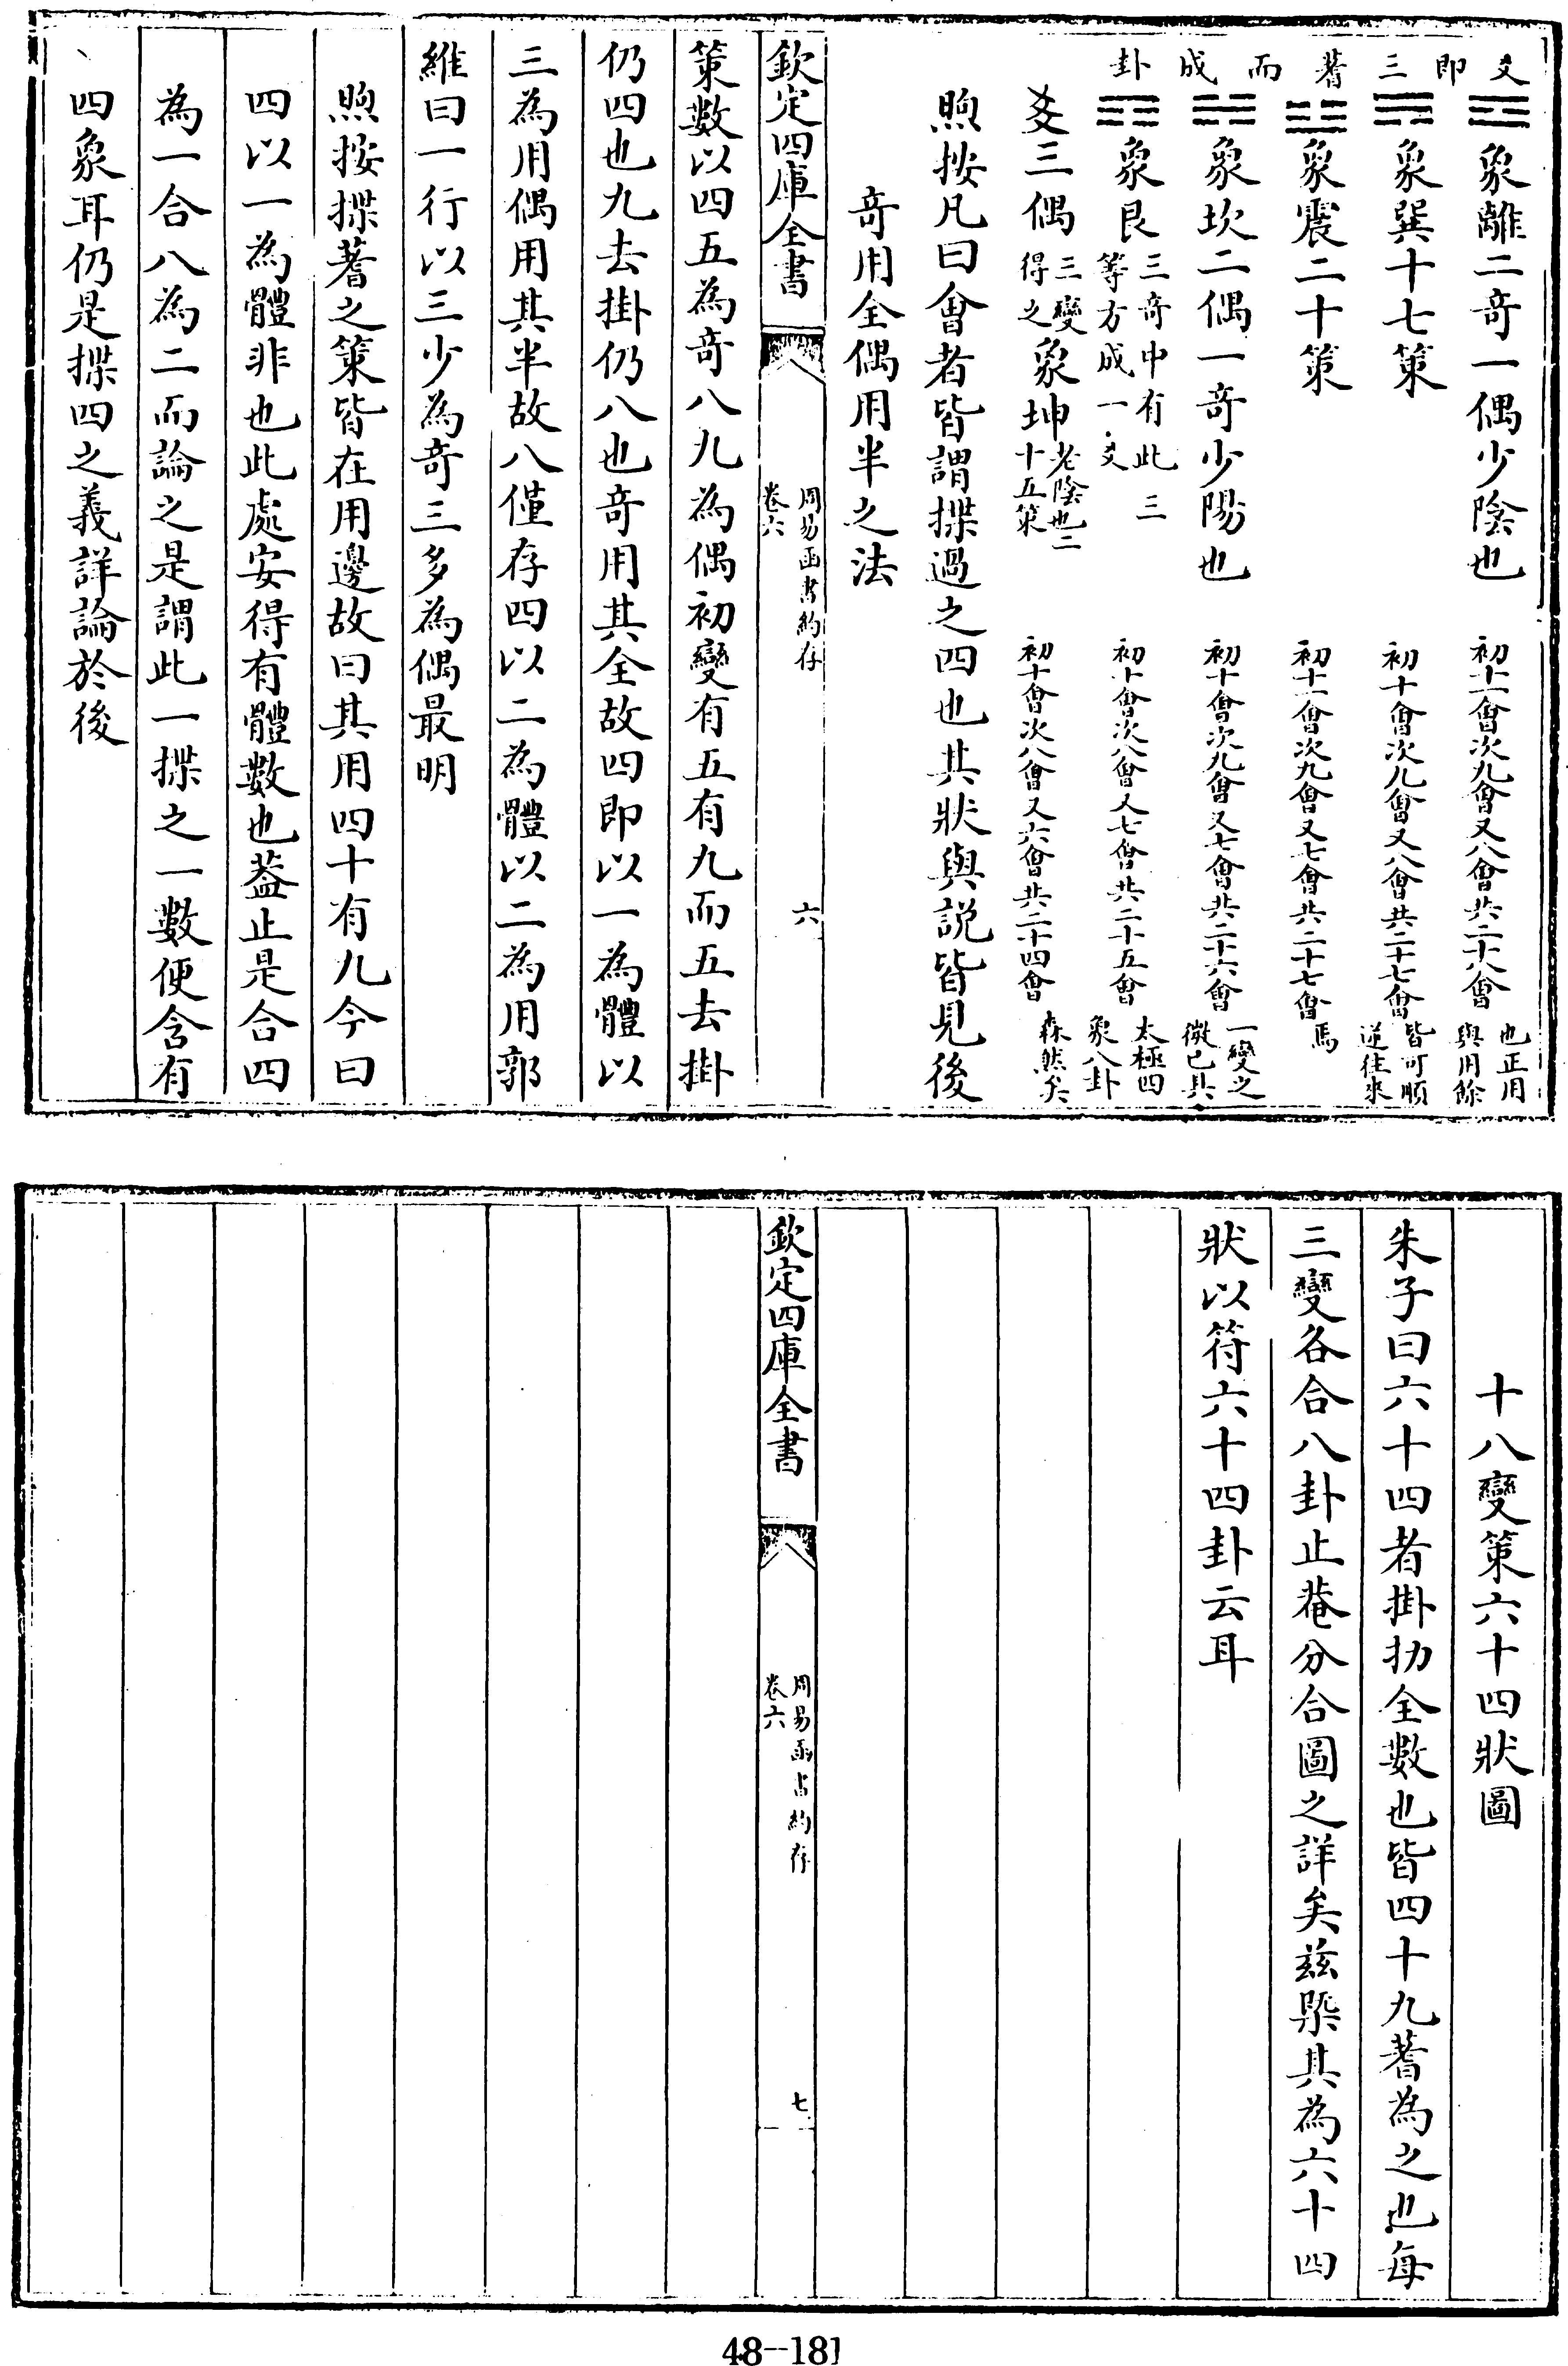 爻即三蓍而成卦
☲象離二竒一偶少陰也 初十一會次九會又八會共二十八會 也正用與用餘
☴象巽十七策 初十會次九會又八會共二十七會 皆可順逆往來
☳象震二十策 初十一會次九會又七會共二十七會 焉
☵象坎二偶一竒少陽也 初十會次九會又七會共二十六會 一變之微已具
☶象艮 三竒中有此三等方成一爻 初十會次八會又七會共二十五會 太極四象八卦
爻三偶 三變得之 象坤 老陰也二十五策 初十會次八會又六會共二十四會 森然矣
煦按凡曰會者皆謂揲過之四也其狀與説皆見後
竒用全偶用半之法
欽定四庫全書
周易函書約存
卷六
六
策數以四五為竒八九為偶初變有五有九而五去掛
仍四也九去掛仍八也竒用其全故四即以一為體以
三為用偶用其半故八僅存四以二為體以二為用郭
維曰一行以三少為竒三多為偶最明
煦按揲蓍之策皆在用邊故曰其用四十有九今曰
四以一為體非也此處安得有體數也葢止是合四
為一合八為二而論之是謂此一揲之一數便含有
四象耳仍是揲四之義詳論於後
十八變策六十四狀圖
朱子曰六十四者掛扐全數也皆四十九蓍為之也每
三變各合八卦止菴分合圖之詳矣兹槩其為六十四
狀以符六十四卦云耳
欽定四庫全書
周易函書約存
卷六
七
48--181